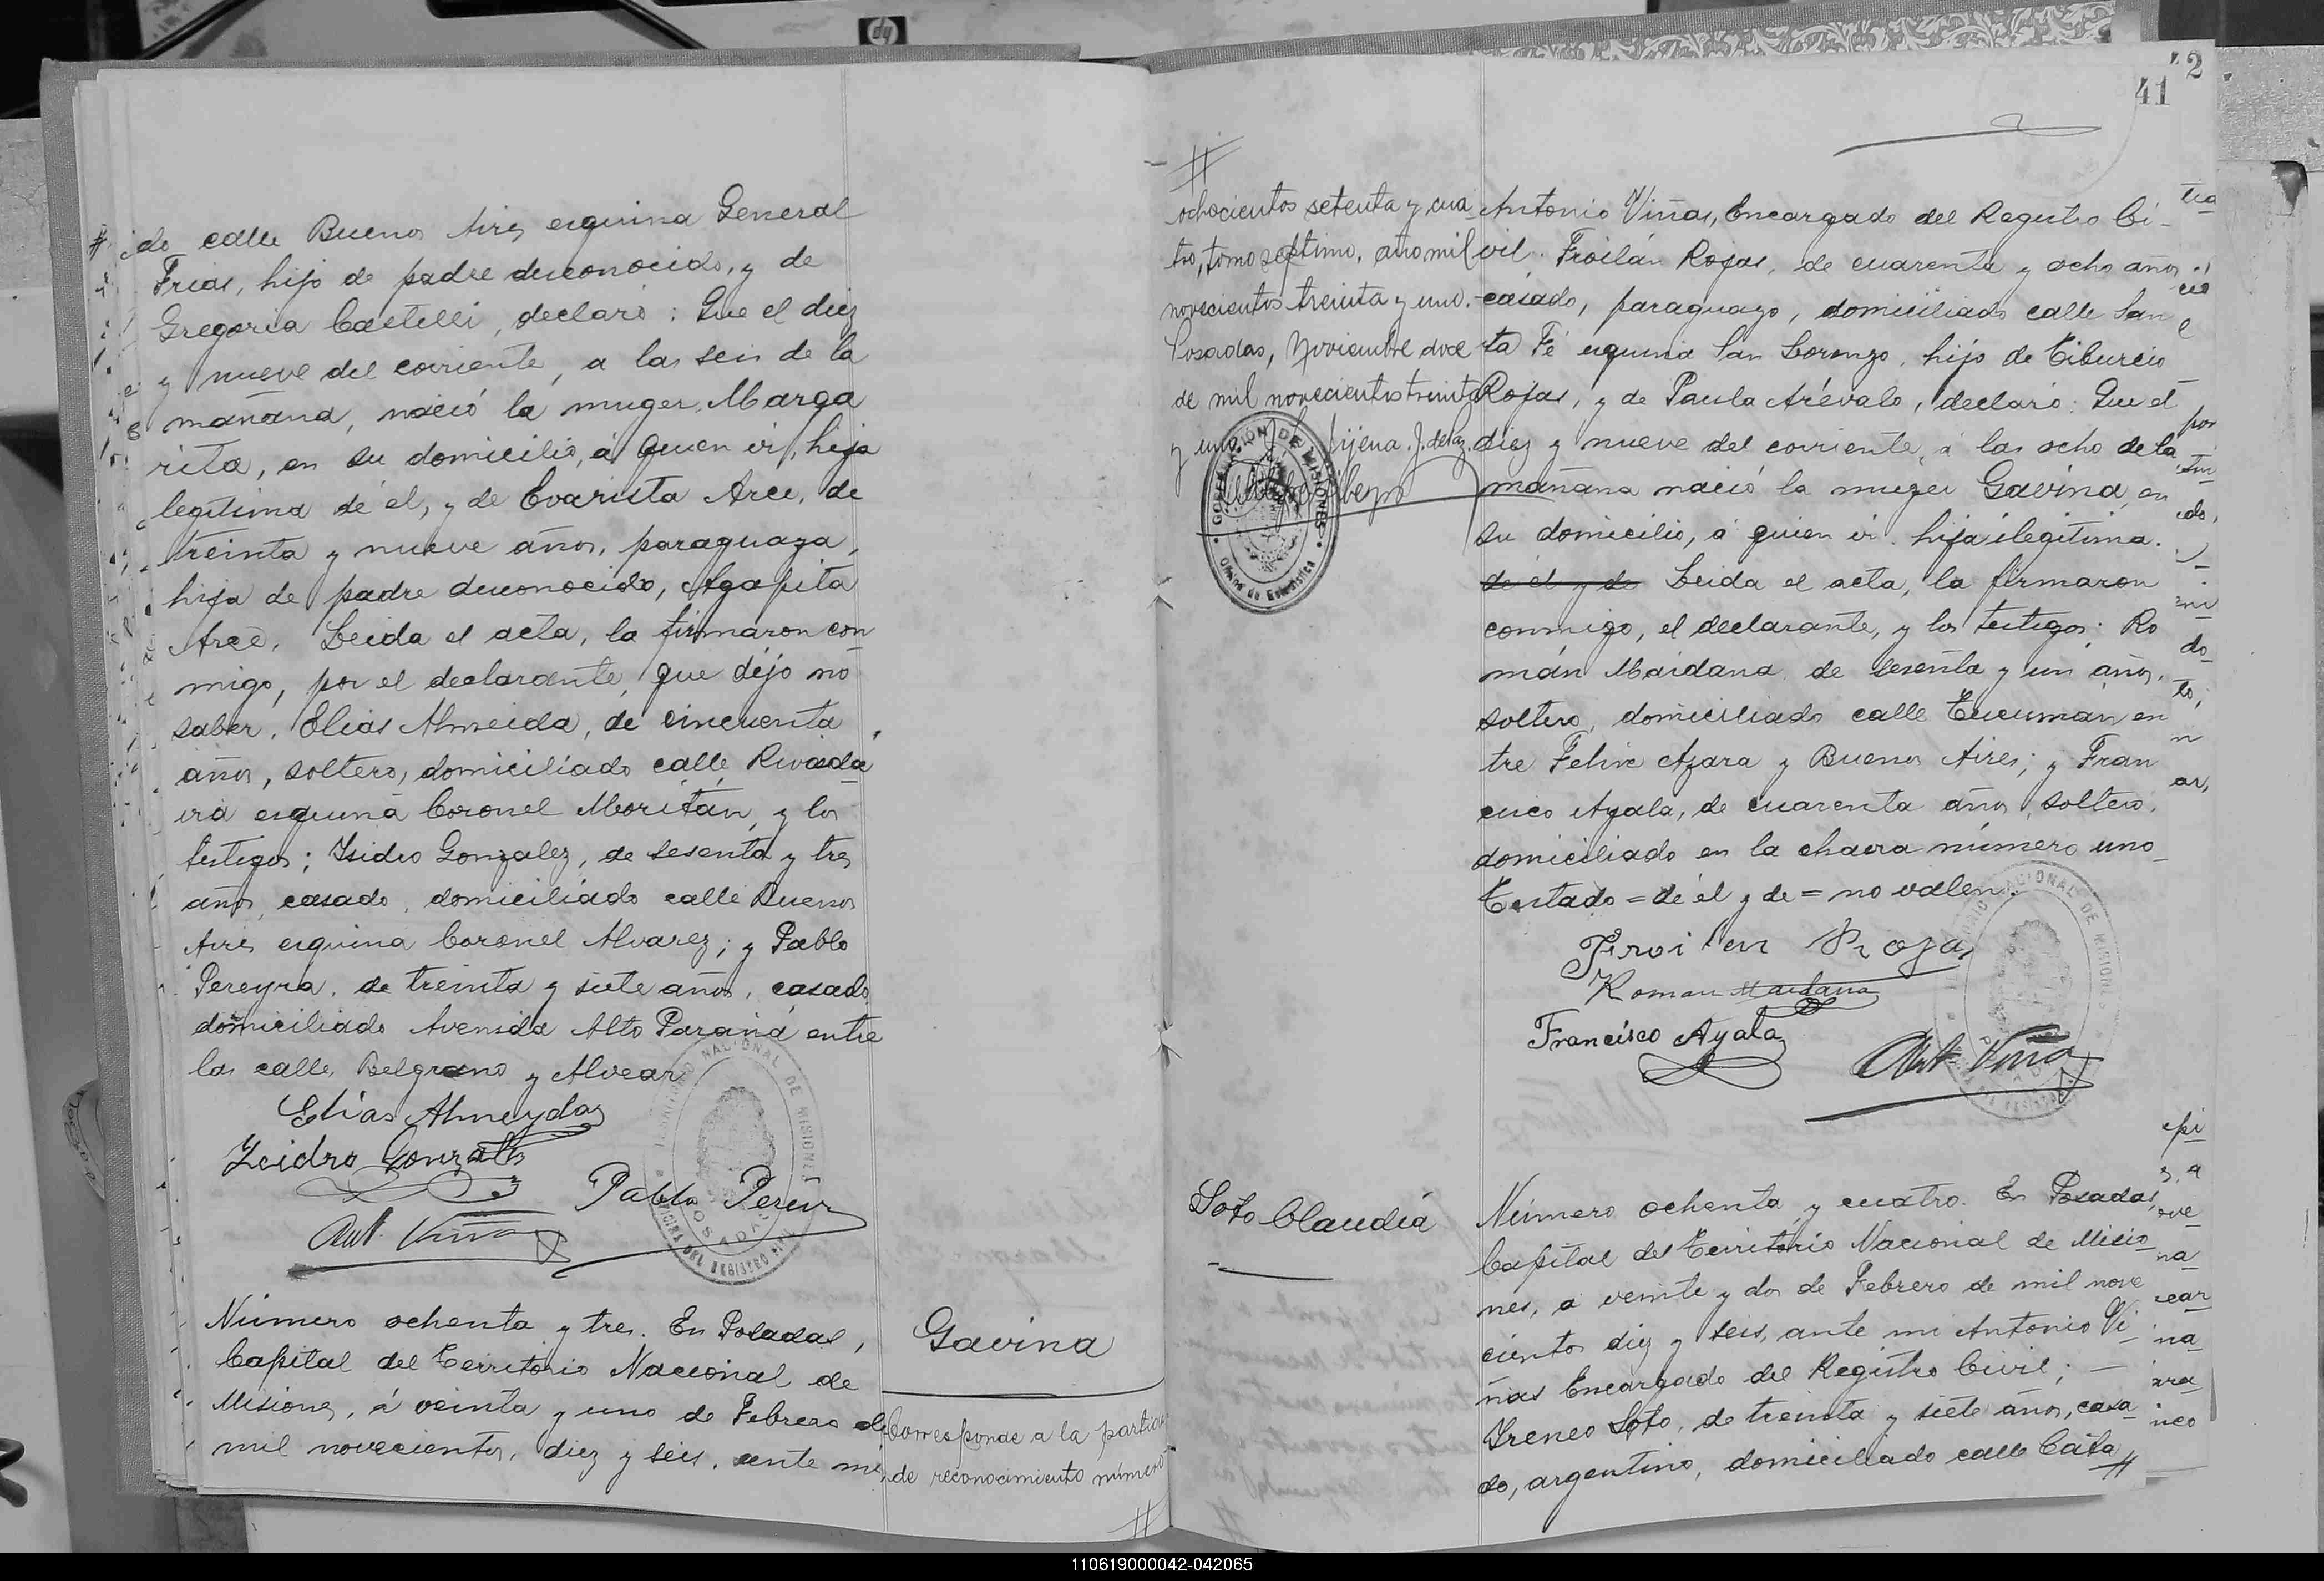 do, calle Buenos Aires esquina General
Frias, hijo de padre desconocido, y de
Gregoria Castelli, declaró: Que el diez
y nueve del corriente, a las seis de la
mañana, nació la muger Marga
rita, en su domicilio, á quien vi, hija
legitima de él, y de Evarista Arce, de
treinta y nueve años, paraguaya,
hija de padre desconocido, Agapita
Arce. Leida el acta, la firmaron con
migo, por el declarante, que dijo no
saber, Elias Almeida, de cincuenta
años, soltero, domiciliado calle Rivada
via esquina Coronel Moritán, y los
testigos; Isidro Gonzalez, de sesenta y tres
años, casado, domiciliado calle Buenos
Aires esquina Coronel Alvarez; y Pablo
Pereyra, de treinta y siete años, casado
domiciliado Avenida Alto Paraná entre
las calles Belgrano y Alvear
Elias Almeyda
Isidro Gonzalez
Pablo
Ant. Viña
TERRITORIO NACIONAL DE MISIONES
POSADAS
OFICINA DEL REGISTRO CIVIL
Número ochenta y tres. En Posadas,
Capital del Territorio Nacional de
Misiones, á veinte y uno de Febrero de
mil novecientos, diez y seis, ante mi,
Gavina
Corresponde a la partida
de reconocimiento número
#
42
41
#
ochocientos setenta y cua
tro, tomo septimo, año mil
novecientos treinta y uno.-
Posadas, Noviembre doce
de mil novecientos treinta
y uno.
GOBERNACIÓN DE MISIONES
Oficina de Estadistica
Antonio Viñas, Encargado del Registro Ci-
vil. Froilán Rojas, de cuarenta y ocho años
casado, paraguayo, domiciliado calle San
ta Fé esquina San Lorenzo, hijo de Tiburcio
Rojas, y de Paula Arévalo, declaró: Que el
diez y nueve del corriente, á las ocho de la
mañana nació la muger Gavina, en
su domicilio, á quien vi. hija ilegitima.
de él y de Leida el acta, la firmaron
conmigo, el declarante, y los testigos: Ro
mán Maidana de sesenta y un años,
soltero, domiciliado calle Tucumán en
tre Felix Azara y Buenos Aires; y Fran
cisco Ayala, de cuarenta años, soltero,
domiciliado en la chacra número uno_
Testado = de él y de = no valen.
Froilan Rojas
Roman Maidana
Francisco Ayala
Ant. Viña
Soto Claudia
Número ochenta y cuatro. En Posadas,
Capital del Territorio Nacional de Misio
nes, a veinte y dos de Febrero de mil nove
cientos diez y seis, ante mi Antonio Vi
ñas Encargado del Registro Civil; —
Ireneo Soto, de treinta y siete años, casa
do, argentino, domiciliado calle Cata
#
110619000042-042065